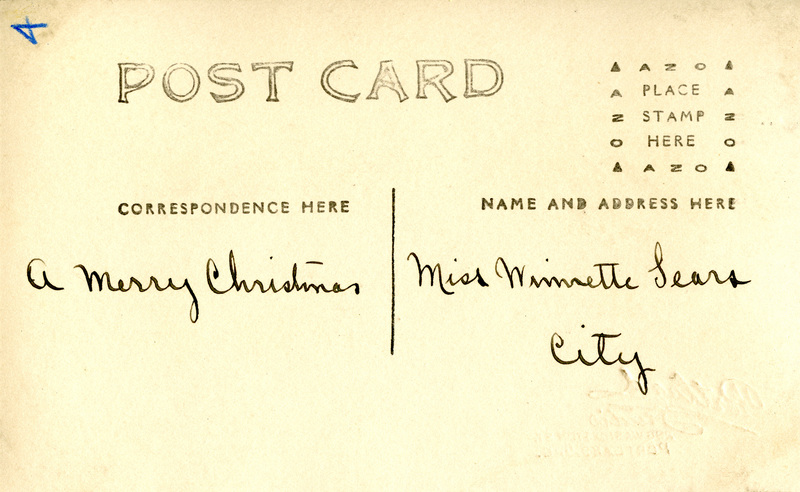 POST CARD
AZO
PLACE
STAMP
HERE
AZO
CORRESPONDENCE HERE
NAME AND ADDRESS HERE
A Merry Christmas
Miss Winnette Sears
City